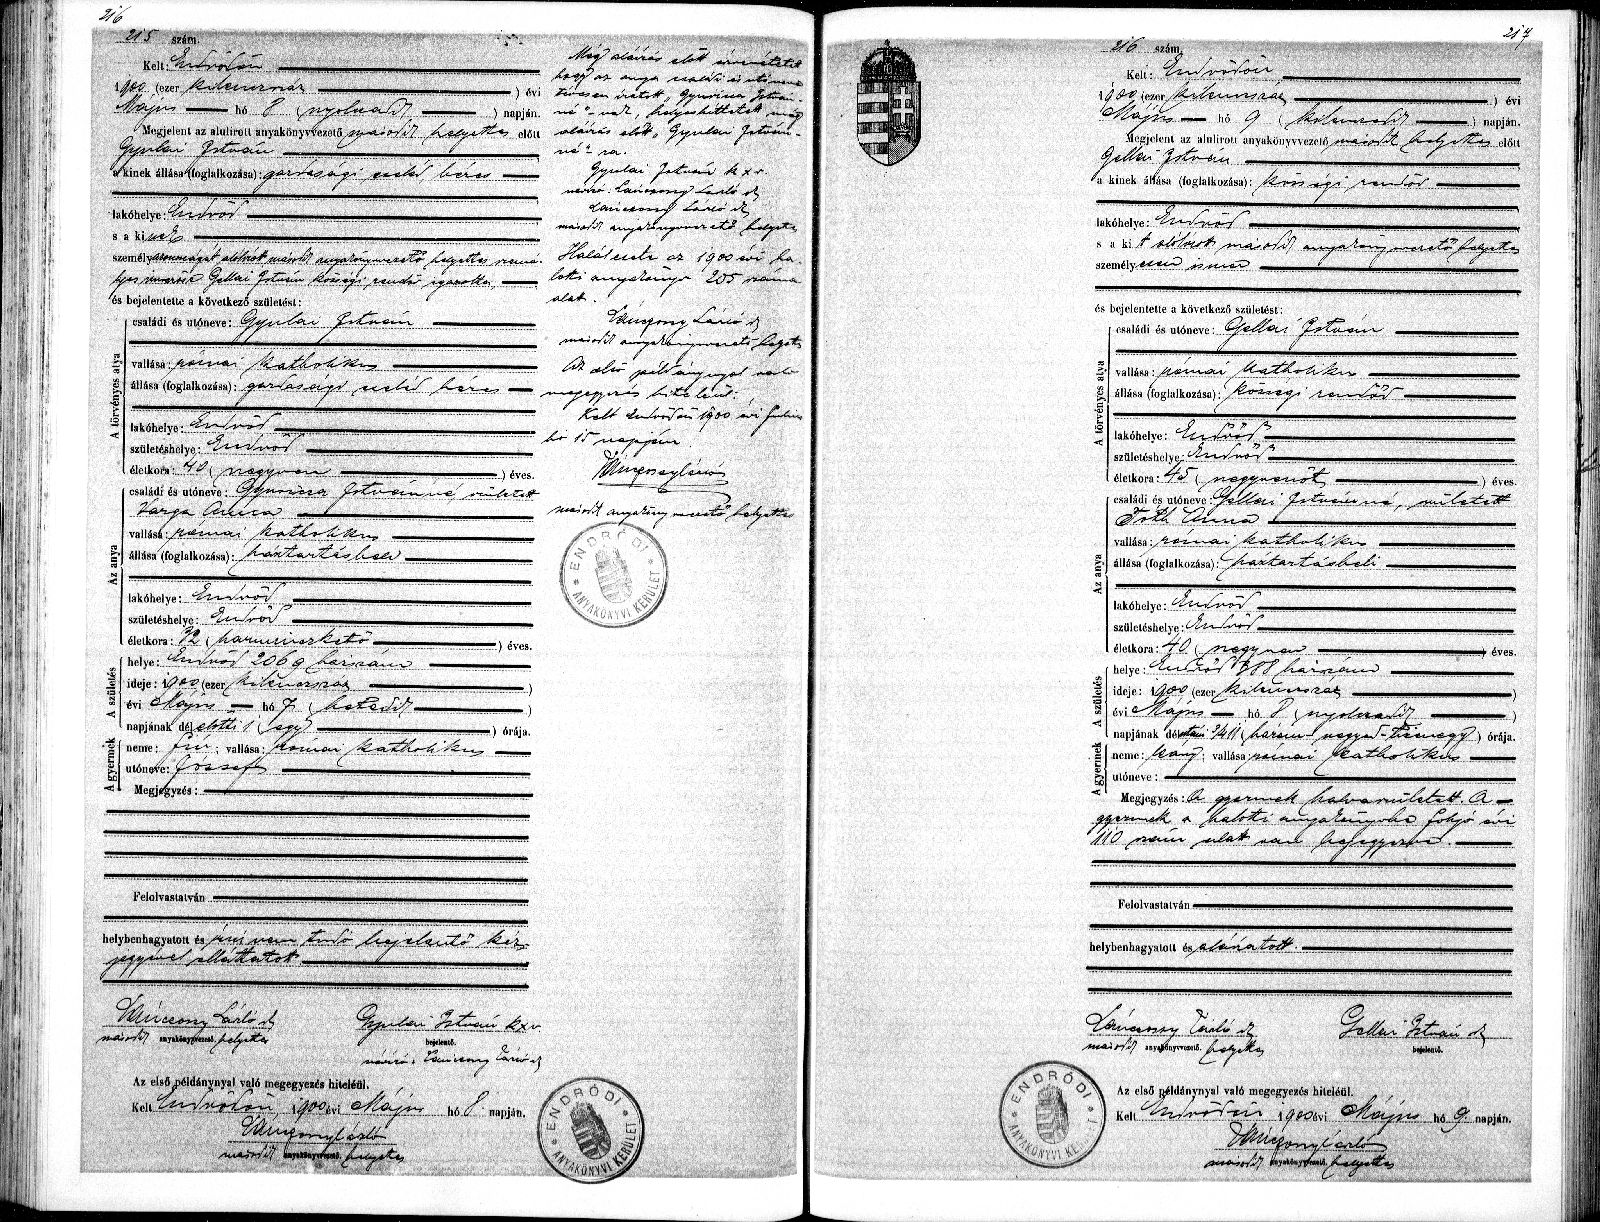 216
215 szám.
Kelt: Endrődön
1900 (ezer kilenczszáz) évi
Május hó 8 (nyolczadik) napján.
Megjelent az alulirott anyakönyvvezető második helyettes előtt
Gyulai István
a kinek állása (foglalkozása): gazdasági cseléd, béres
lakóhelye: Endrőd
s a ki
személyazonosságát alólirott második anyakönyvvezető helyettes
Gellai István községi rendőr igazolta,
és bejelentette a következő születést:
A törvényes atya
családi és utóneve: Gyulai István
vallása: római katholikus
állása (foglalkozása): gazdasági cseléd béres
lakóhelye: Endrőd
születéshelye: Endrőd
életkora: 40 (negyven) éves.
Az anya
családi és utóneve: Gyuricza Istvánné, született
Varga Anna
vallása: római katholikus
állása (foglalkozása): háztartásbeli
lakóhelye: Endrőd
születéshelye: Endrőd
életkora: 32 (harminczkettő) éves.
A születés
helye: Endrőd 2069 házszám
ideje: 1900 (ezer kilenczszáz)
évi Május hó 7 (hetedik)
napjának délelőtti 1 (egy) órája.
A gyermek
neme: fiú; vallása: római katholikus
utóneve: József
Megjegyzés:
Felolvastatván
helybenhagyatott és írni nem tudó bejelentő kéz-
jegyével elláttatott
Lánczony László sk
második anyakönyvvezető. helyettes
Gyulai István kxv
bejelentő.
névíró: Lánczony László sk
Az első példánynyal való megegyezés hiteléül.
Kelt Endrődön 1900 évi Május hó 8. napján.
Lánczony László
második anyakönyvvezető helyettes
ENDRŐDI ANYAKÖNYVI KERÜLET
Még aláirás előtt
hogy az anya családi és utóneve
tévesen iratott Gyuricza István-
né"-nak, helyesbittetett még
aláirás előtt "Gyulai István-
né"-ra.
Gyulai István kxv
névíró: Lánczony László sk
Lánczony László sk
második anyakönyvvezető helyettes
Halálesete az 1900 évi ha-
lotti anyakönyv 205 száma
alatt.
Lánczony László sk
második anyakönyvvezető helyettes
Az első példánynyal való
megegyezés hiteléül:
Kelt Endrődön 1900 évi
hó 15 napján
Lánczony László
második anyakönyvvezető helyettes
ENDRŐDI ANYAKÖNYVI KERÜLET
217
216 szám.
Kelt: Endrődön
1900 (ezer kilenczszáz) évi
Május hó 9 (kilenczedik) napján.
Megjelent az alulirott anyakönyvvezető második helyettes előtt
Gellai István
a kinek állása (foglalkozása): községi rendőr
lakóhelye: Endrőd
s a kit alólirott második anyakönyvvezető helyettes
személyesen ismer
és bejelentette a következő születést:
A törvényes atya
családi és utóneve: Gellai István
vallása: római katholikus
állása (foglalkozása): községi rendőr
lakóhelye: Endrőd
születéshelye: Endrőd
életkora: 45 (negyvenöt) éves.
Az anya
családi és utóneve: Gellai Istvánné, született
Tóth Anna
vallása: római katholikus
állása (foglalkozása): háztartásbeli
lakóhelye: Endrőd
születéshelye: Endrőd
életkora: 40 (negyven) éves.
A születés
helye: Endrőd házszám
ideje: 1900 (ezer kilenczszáz)
évi Május hó 8 (nyolczadik)
napjának délutáni 3/4 11 (háromnegyed-tizenegy) órája.
A gyermek
neme: leány; vallása: római katholikus
utóneve:
Megjegyzés: A gyermek halva született. A
gyermek a halotti anyakönyvbe folyó évi
110 szám alatt van bejegyezve.
Felolvastatván
helybenhagyatott és aláiratott.
Lánczony László sk
második anyakönyvvezető. helyettes
Gellai István sk
bejelentő.
Az első példánynyal való megegyezés hiteléül.
Kelt Endrődön 1900 évi Május hó 9. napján.
Lánczony László
második anyakönyvvezető helyettes
ENDRŐDI ANYAKÖNYVI KERÜLET